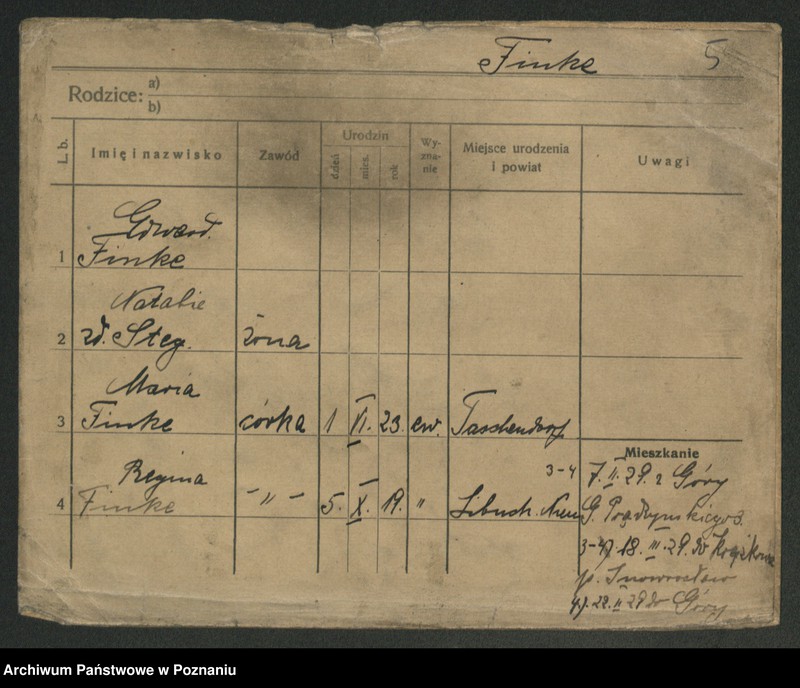 Finke 5
Rodzice: a)
b)
L. b. Imię i nazwisko Zawód Urodzin dzień mies. rok Wy-zna-nie Miejsce urodzenia i powiat Uwagi
Edward
1 Finke
Natalie
2 zd. Steg. żona
Maria
3 Finke córka 1 VI. 23. ew. Taschendorf
Mieszkanie
3-4 7. II. 29. z Góry
Regina
4 Finke -"- 5. X. 19. " Libusch. Niem G. Prądzyńskiego 3.
3-4) 18. III. 29. do
p. Inowrocław
4.) 22. 29 do Góry
Archiwum Państwowe w Poznaniu